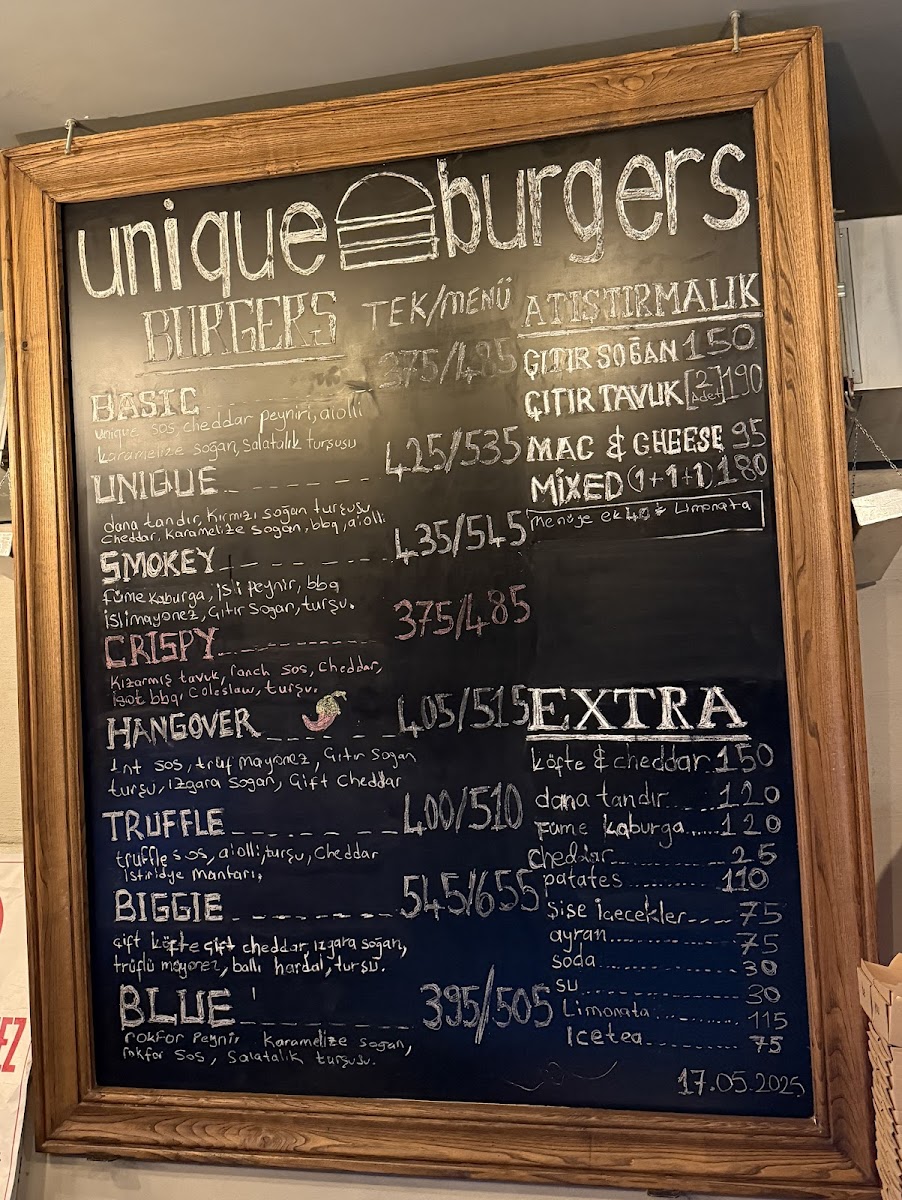 unique burgers
BURGERS TEK/MENÜ
BASIC 375/485
unique sos, cheddar peyniri, aiolli
karamelize soğan, salatalık turşusu
UNIQUE 425/535
dana tandır, kırmızı soğan turşusu
cheddar, karamelize soğan, bbq, aiolli
SMOKEY 435/545
füme kaburga, isli peynir, bbq
isli mayonez, çıtır soğan, turşu.
CRISPY 375/485
kızarmış tavuk, ranch sos, cheddar,
bbq, coleslaw, turşu.
HANGOVER 405/515
sos, trüf mayonez, çıtır soğan
turşu, ızgara soğan, çift cheddar
TRUFFLE 400/510
truffle sos, aiolli, turşu, cheddar
istiridye mantarı,
BIGGIE 545/655
çift köfte çift cheddar, ızgara soğan,
trüflü mayonez, ballı hardal, turşu.
BLUE 395/505
rokfor peynir karamelize soğan,
rokfor sos, salatalık turşusu.
ATIŞTIRMALIK
ÇITIR SOĞAN 150
ÇITIR TAVUK [2 Adet] 190
MAC & CHEESE 95
MİXED (1+1+1) 180
Menüye ek 40₺ Limonata
EXTRA
köfte & cheddar 150
dana tandır 120
Füme kaburga 120
cheddar 25
patates 110
Şişe İçecekler 75
ayran 75
soda 30
su 30
Limonata 115
Icetea 75
17.05.2025
EZ